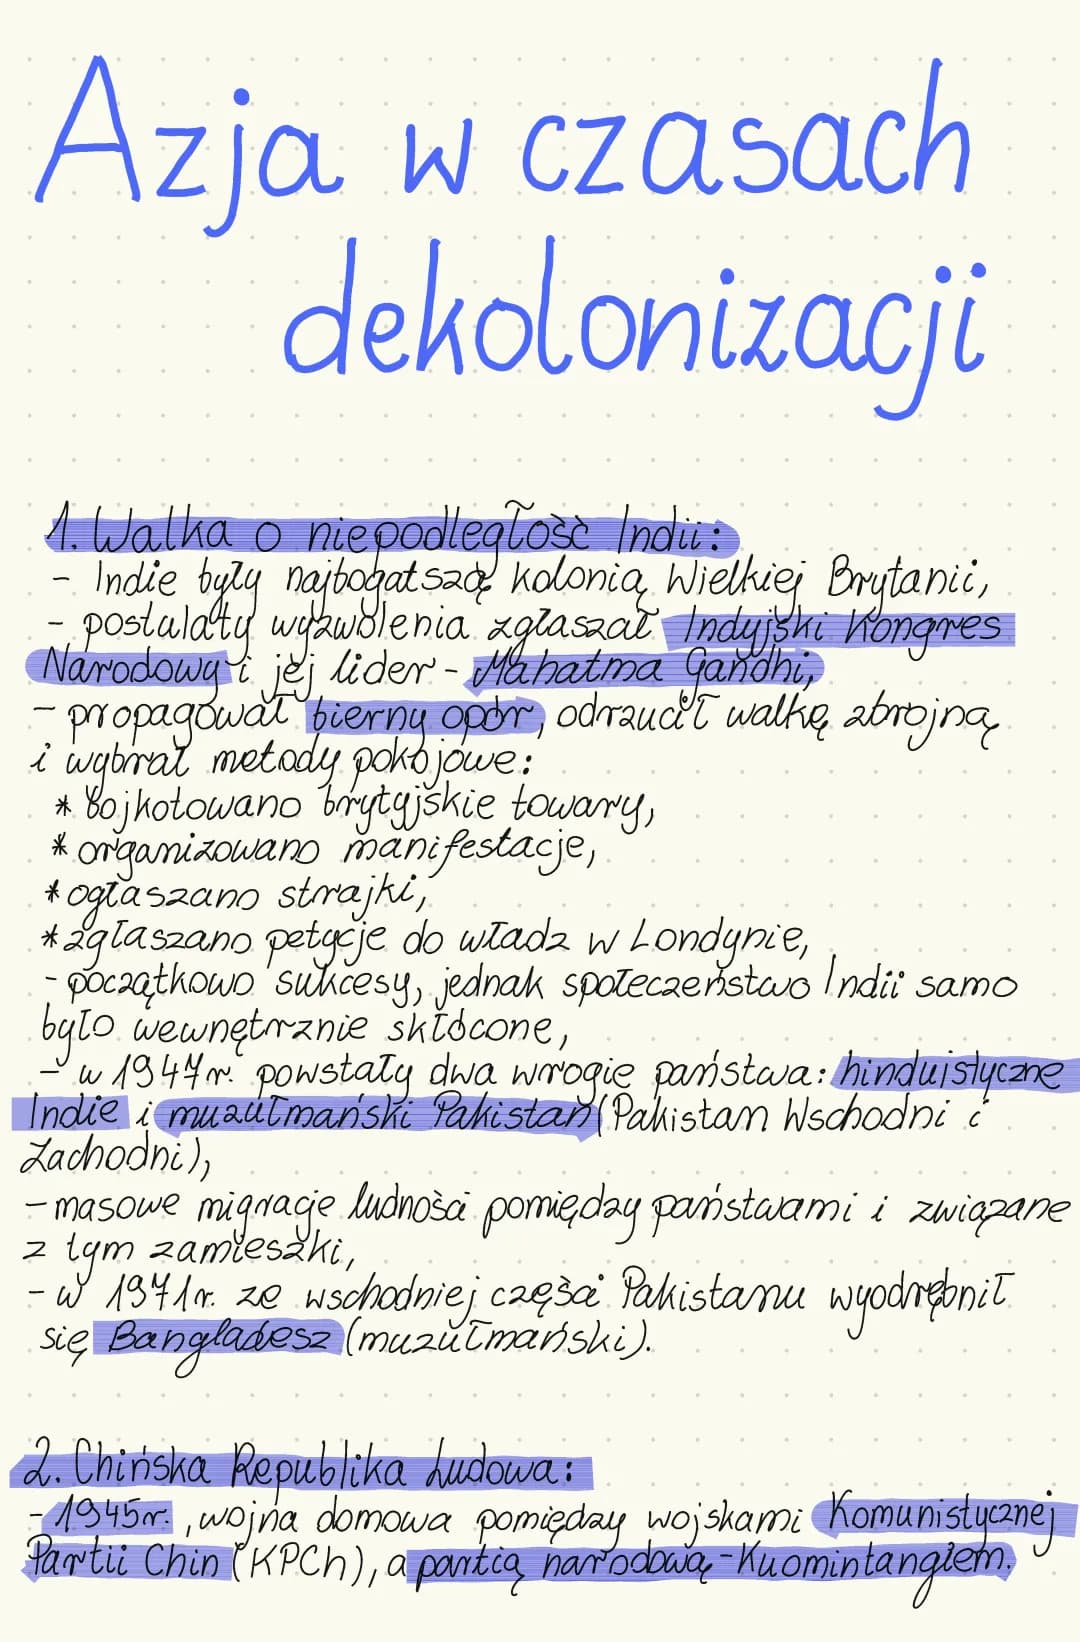 Azja w czasach
dekolonizacji
1. Walka o niepodległość Indii:
- Indie były najbogatszą kolonią Wielkiej Brytanii,
- postulaty wyzwolenia zgłaszał Indyjski Kongres
Narodowy i jej lider - Mahatma Gandhi,
- propagował bierny opór, odrzucił walkę zbrojną
i wybrał metody pokojowe:
* bojkotowano brytyjskie towary,
* organizowano manifestacje,
* ogłaszano strajki,
* zgłaszano petycje do władz w Londynie,
- początkowo sukcesy, jednak społeczeństwo Indii samo
było wewnętrznie skłócone,
- w 1947r. powstały dwa wrogie państwa: hinduistyczne
Indie i muzułmański Pakistan (Pakistan Wschodni i
Zachodni),
- masowe migracje ludności pomiędzy państwami i związane
z tym zamieszki,
- w 1971r. ze wschodniej części Pakistanu wyodrębnił
się Bangladesz (muzułmański).
2. Chińska Republika Ludowa:
- 1945r., wojna domowa pomiędzy wojskami Komunistycznej
Partii Chin (KPCh), a partią narodową - Kuomintangiem.